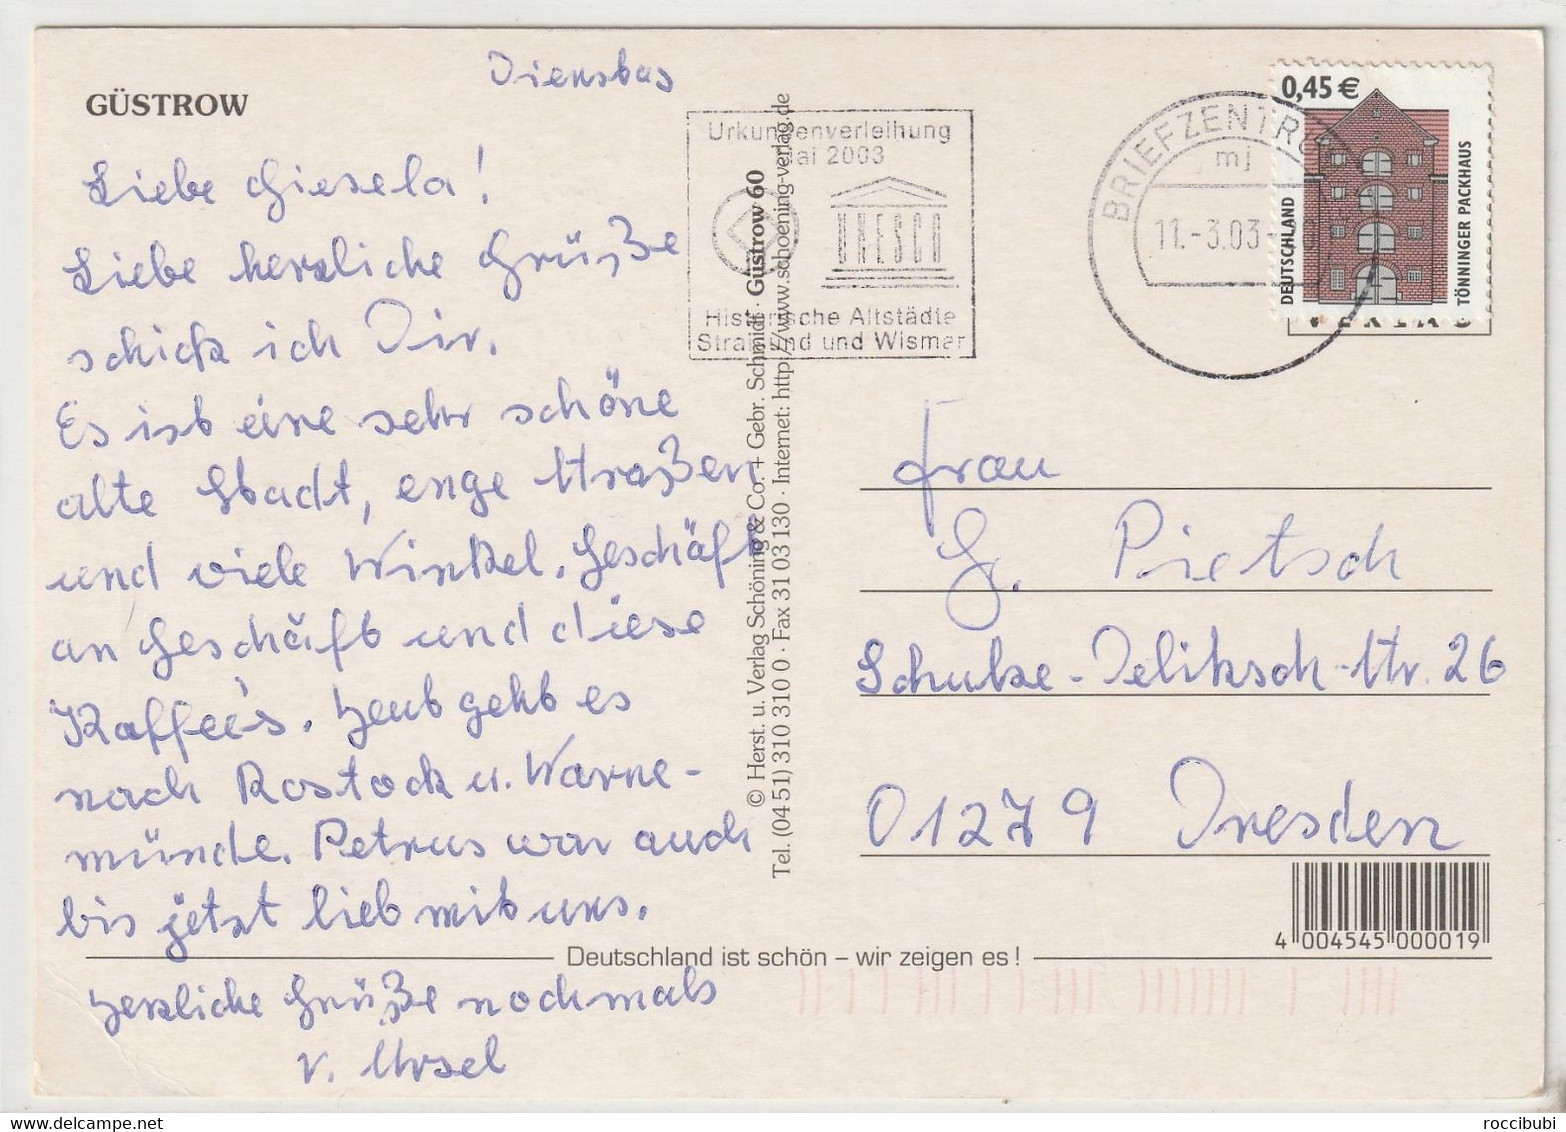 GÜSTROW
Dienstag
Liebe Giesela!
Liebe herzliche Grüße
schick ich Dir.
Es ist eine sehr schöne
alte Stadt, enge Straßen
und viele Winkel. Geschäft
an Geschäft und diese
Kaffee's. Heut geht es
nach Rostock u. Warne-
münde. Petrus war auch
bis jetzt lieb mit uns.
Herzliche Grüße nochmals
v. Ursel
Deutschland ist schön – wir zeigen es!
© Herst. u. Verlag Schöning & Co. + Gebr. Schmidt · Güstrow 60
Tel. (04 51) 310 310 0 · Fax 31 03 130 · Internet: http://www.schoening-verlag.de
Urkundenverleihung
Mai 2003
UNESCO
Historische Altstädte
Stralsund und Wismar
BRIEFZENTRU
mj
11.-3.03
0,45 €
DEUTSCHLAND
TÖNNINGER PACKHAUS
VERLAG
Frau
G. Pietsch
Schulze-Delitzsch-Str. 26
01279 Dresden
4 004545 000019
roccibubi